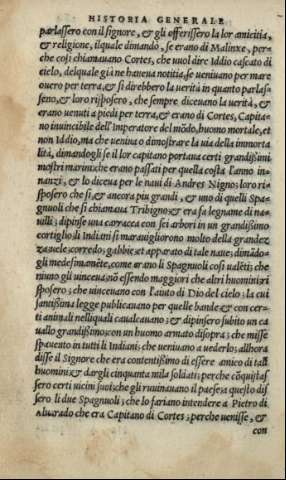 HISTORIA GENERALE
parlassero con il signore, & gli offerissero la lor amicitia,
& religione, ilquale dimandò, se erano di Malinxe, per-
che cosi chiamauano Cortes, che vuol dire Iddio cascato di
cielo, delquale già ne haueua notitia, se ueniuano per mare
ouero per terra, & si direbbero la uerità in quanto parlas-
seno, & loro risposero, che sempre diceuano la verità, &
erano uenuti a piedi per terra, & erano di Cortes, Capita-
no inuincibile dell'Imperatore del mõdo, huomo mortale, et
non Iddio, ma che ueniua o dimostrare la uia della immorta
lità, dimandogli se il lor capitano portaua certi grandissimi
mostri marini che erano passati per quella costa l'anno in-
nanzi, & lo diceua per le naui di Andres Nigno: loro ri-
sposero che si, & ancora piu grandi, & uno di quelli Spa-
gnuoli che si chiamaua Tribigno & era fa legname di na-
uili; dipinse una carracca con sei arbori in un grandissimo
cortiglio, li Indiani si marauigliorono molto della grandez
za, uele corredo, gabbie, et apparato di tale naue; dimãdo-
gli medesimamẽte, come erano li Spagnuoli cosi ualẽti; che
niuno gli uinceua, nõ essendo maggiori che altri huomini: ri
sposero; che uinceuano con l'auto di Dio del cielo; la cui
santissima legge publicauano per quelle bande & con cer-
ti animali nelliquali caualcauano; & dipinsero subito un ca
uallo grandissimo; con un huomo armato disopra; che misse
spauento in tutti li Indiani; che ueniuano a uederlo; allhora
disse il Signore che era contentissimo di essere amico di tali
huomini & dargli cinquanta mila soldati; perche cõquistas
sero certi uicini suoi che gli ruuinauano il paese; a questo dis
sero li due Spagnuoli; che lo fariano intendere a Pietro di
Aluarado che era Capitano di Cortes; perche uenisse, &
con